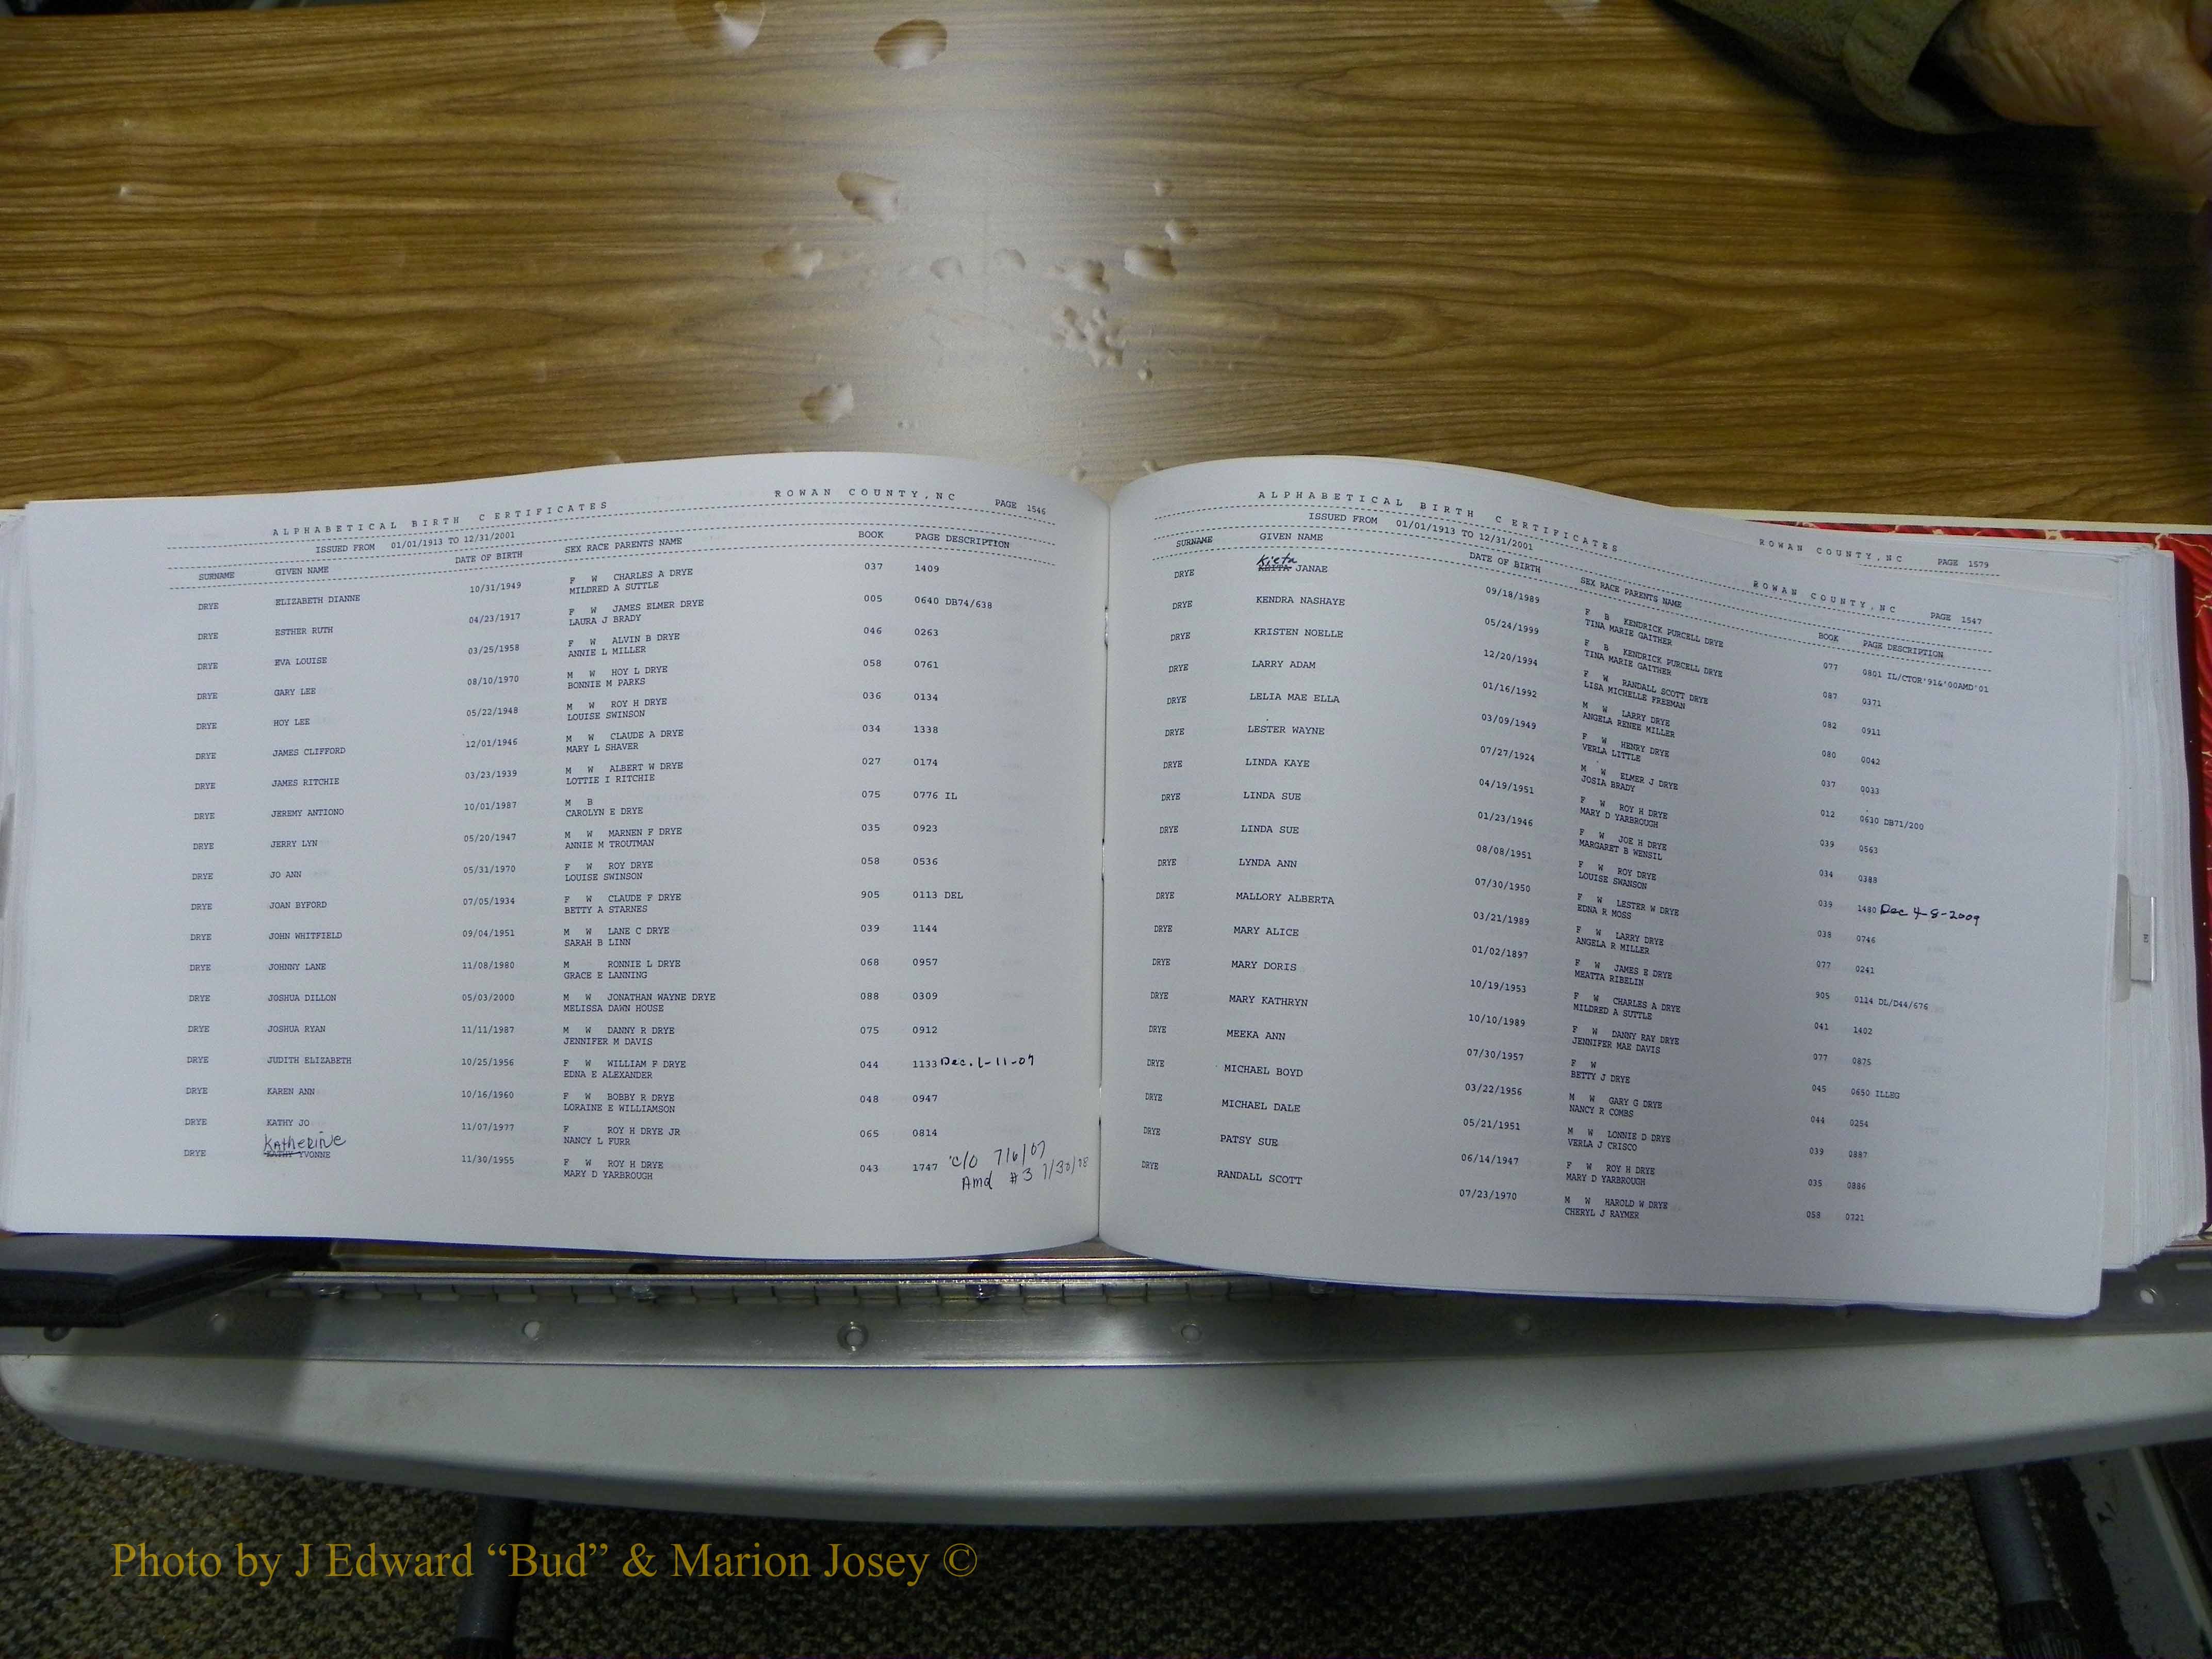 ALPHABETICAL BIRTH CERTIFICATES ROWAN COUNTY,NC PAGE 1546
ISSUED FROM 01/01/1913 TO 12/31/2001
SURNAME GIVEN NAME DATE OF BIRTH SEX RACE PARENTS NAME BOOK PAGE DESCRIPTION
DRYE ELIZABETH DIANNE 10/31/1949 F W CHARLES A DRYE 037 1409
MILDRED A SUTTLE
DRYE ESTHER RUTH 04/23/1917 F W JAMES ELMER DRYE 005 0640 DB74/638
LAURA J BRADY
DRYE EVA LOUISE 03/25/1958 F W ALVIN B DRYE 046 0263
ANNIE L MILLER
DRYE GARY LEE 08/10/1970 M W HOY L DRYE 058 0761
BONNIE M PARKS
DRYE HOY LEE 05/22/1948 M W ROY H DRYE 036 0134
LOUISE SWINSON
DRYE JAMES CLIFFORD 12/01/1946 M W CLAUDE A DRYE 034 1338
MARY L SHAVER
DRYE JAMES RITCHIE 03/23/1939 M W ALBERT W DRYE 027 0174
LOTTIE I RITCHIE
DRYE JEREMY ANTIONO 10/01/1987 M B 075 0776 IL
CAROLYN E DRYE
DRYE JERRY LYN 05/20/1947 M W MARNEN F DRYE 035 0923
ANNIE M TROUTMAN
DRYE JO ANN 05/31/1970 F W ROY DRYE 058 0536
LOUISE SWINSON
DRYE JOAN BYFORD 07/05/1934 F W CLAUDE F DRYE 905 0113 DEL
BETTY A STARNES
DRYE JOHN WHITFIELD 09/04/1951 M W LANE C DRYE 039 1144
SARAH B LINN
DRYE JOHNNY LANE 11/08/1980 M RONNIE L DRYE 068 0957
GRACE E LANNING
DRYE JOSHUA DILLON 05/03/2000 M W JONATHAN WAYNE DRYE 088 0309
MELISSA DAWN HOUSE
DRYE JOSHUA RYAN 11/11/1987 M W DANNY R DRYE 075 0912
JENNIFER M DAVIS
DRYE JUDITH ELIZABETH 10/25/1956 F W WILLIAM F DRYE 044 1133 Dec. 1-11-07
EDNA E ALEXANDER
DRYE KAREN ANN 10/16/1960 F W BOBBY R DRYE 048 0947
LORAINE E WILLIAMSON
DRYE KATHY JO 11/07/1977 F ROY H DRYE JR 065 0814
NANCY L FURR
Katherine
DRYE KATHY YVONNE 11/30/1955 F W ROY H DRYE 043 1747 c/o 7/6/07
MARY D YARBROUGH Amd #3 7/30/08
ALPHABETICAL BIRTH CERTIFICATES ROWAN COUNTY,NC PAGE 1579
ISSUED FROM 01/01/1913 TO 12/31/2001 ROWAN COUNTY,NC PAGE 1547
SURNAME GIVEN NAME DATE OF BIRTH SEX RACE PARENTS NAME BOOK PAGE DESCRIPTION
Kieta
DRYE KEITA JANAE 09/18/1989 F B KENDRICK PURCELL DRYE 077 0801 IL/CTOR'91&'00AMD'01
TINA MARIE GAITHER
DRYE KENDRA NASHAYE 05/24/1999 F B KENDRICK PURCELL DRYE 087 0371
TINA MARIE GAITHER
DRYE KRISTEN NOELLE 12/20/1994 F W RANDALL SCOTT DRYE 082 0911
LISA MICHELLE FREEMAN
DRYE LARRY ADAM 01/16/1992 M W LARRY DRYE 080 0042
ANGELA RENEE MILLER
DRYE LELIA MAE ELLA 03/09/1949 F W HENRY DRYE 037 0033
VERLA LITTLE
DRYE LESTER WAYNE 07/27/1924 M W ELMER J DRYE 012 0630 DB71/200
JOSIA BRADY
DRYE LINDA KAYE 04/19/1951 F W ROY H DRYE 039 0563
MARY D YARBROUGH
DRYE LINDA SUE 01/23/1946 F W JOE H DRYE 034 0388
MARGARET B WENSIL
DRYE LINDA SUE 08/08/1951 F W ROY DRYE 039 1480 Dec 4-8-2009
LOUISE SWANSON
DRYE LYNDA ANN 07/30/1950 F W LESTER W DRYE 038 0746
EDNA R MOSS
DRYE MALLORY ALBERTA 03/21/1989 F W LARRY DRYE 077 0241
ANGELA R MILLER
DRYE MARY ALICE 01/02/1897 F W JAMES E DRYE 905 0114 DL/D44/676
MEATTA RIBELIN
DRYE MARY DORIS 10/19/1953 F W CHARLES A DRYE 041 1402
MILDRED A SUTTLE
DRYE MARY KATHRYN 10/10/1989 F W DANNY RAY DRYE 077 0875
JENNIFER MAE DAVIS
DRYE MEEKA ANN 07/30/1957 F W 045 0650 ILLEG
BETTY J DRYE
DRYE MICHAEL BOYD 03/22/1956 M W GARY G DRYE 044 0254
NANCY R COMBS
DRYE MICHAEL DALE 05/21/1951 M W LONNIE D DRYE 039 0887
VERLA J CRISCO
DRYE PATSY SUE 06/14/1947 F W ROY H DRYE 035 0886
MARY D YARBROUGH
DRYE RANDALL SCOTT 07/23/1970 M W HAROLD W DRYE 058 0721
CHERYL J RAYMER
Photo by J Edward “Bud” & Marion Josey ©